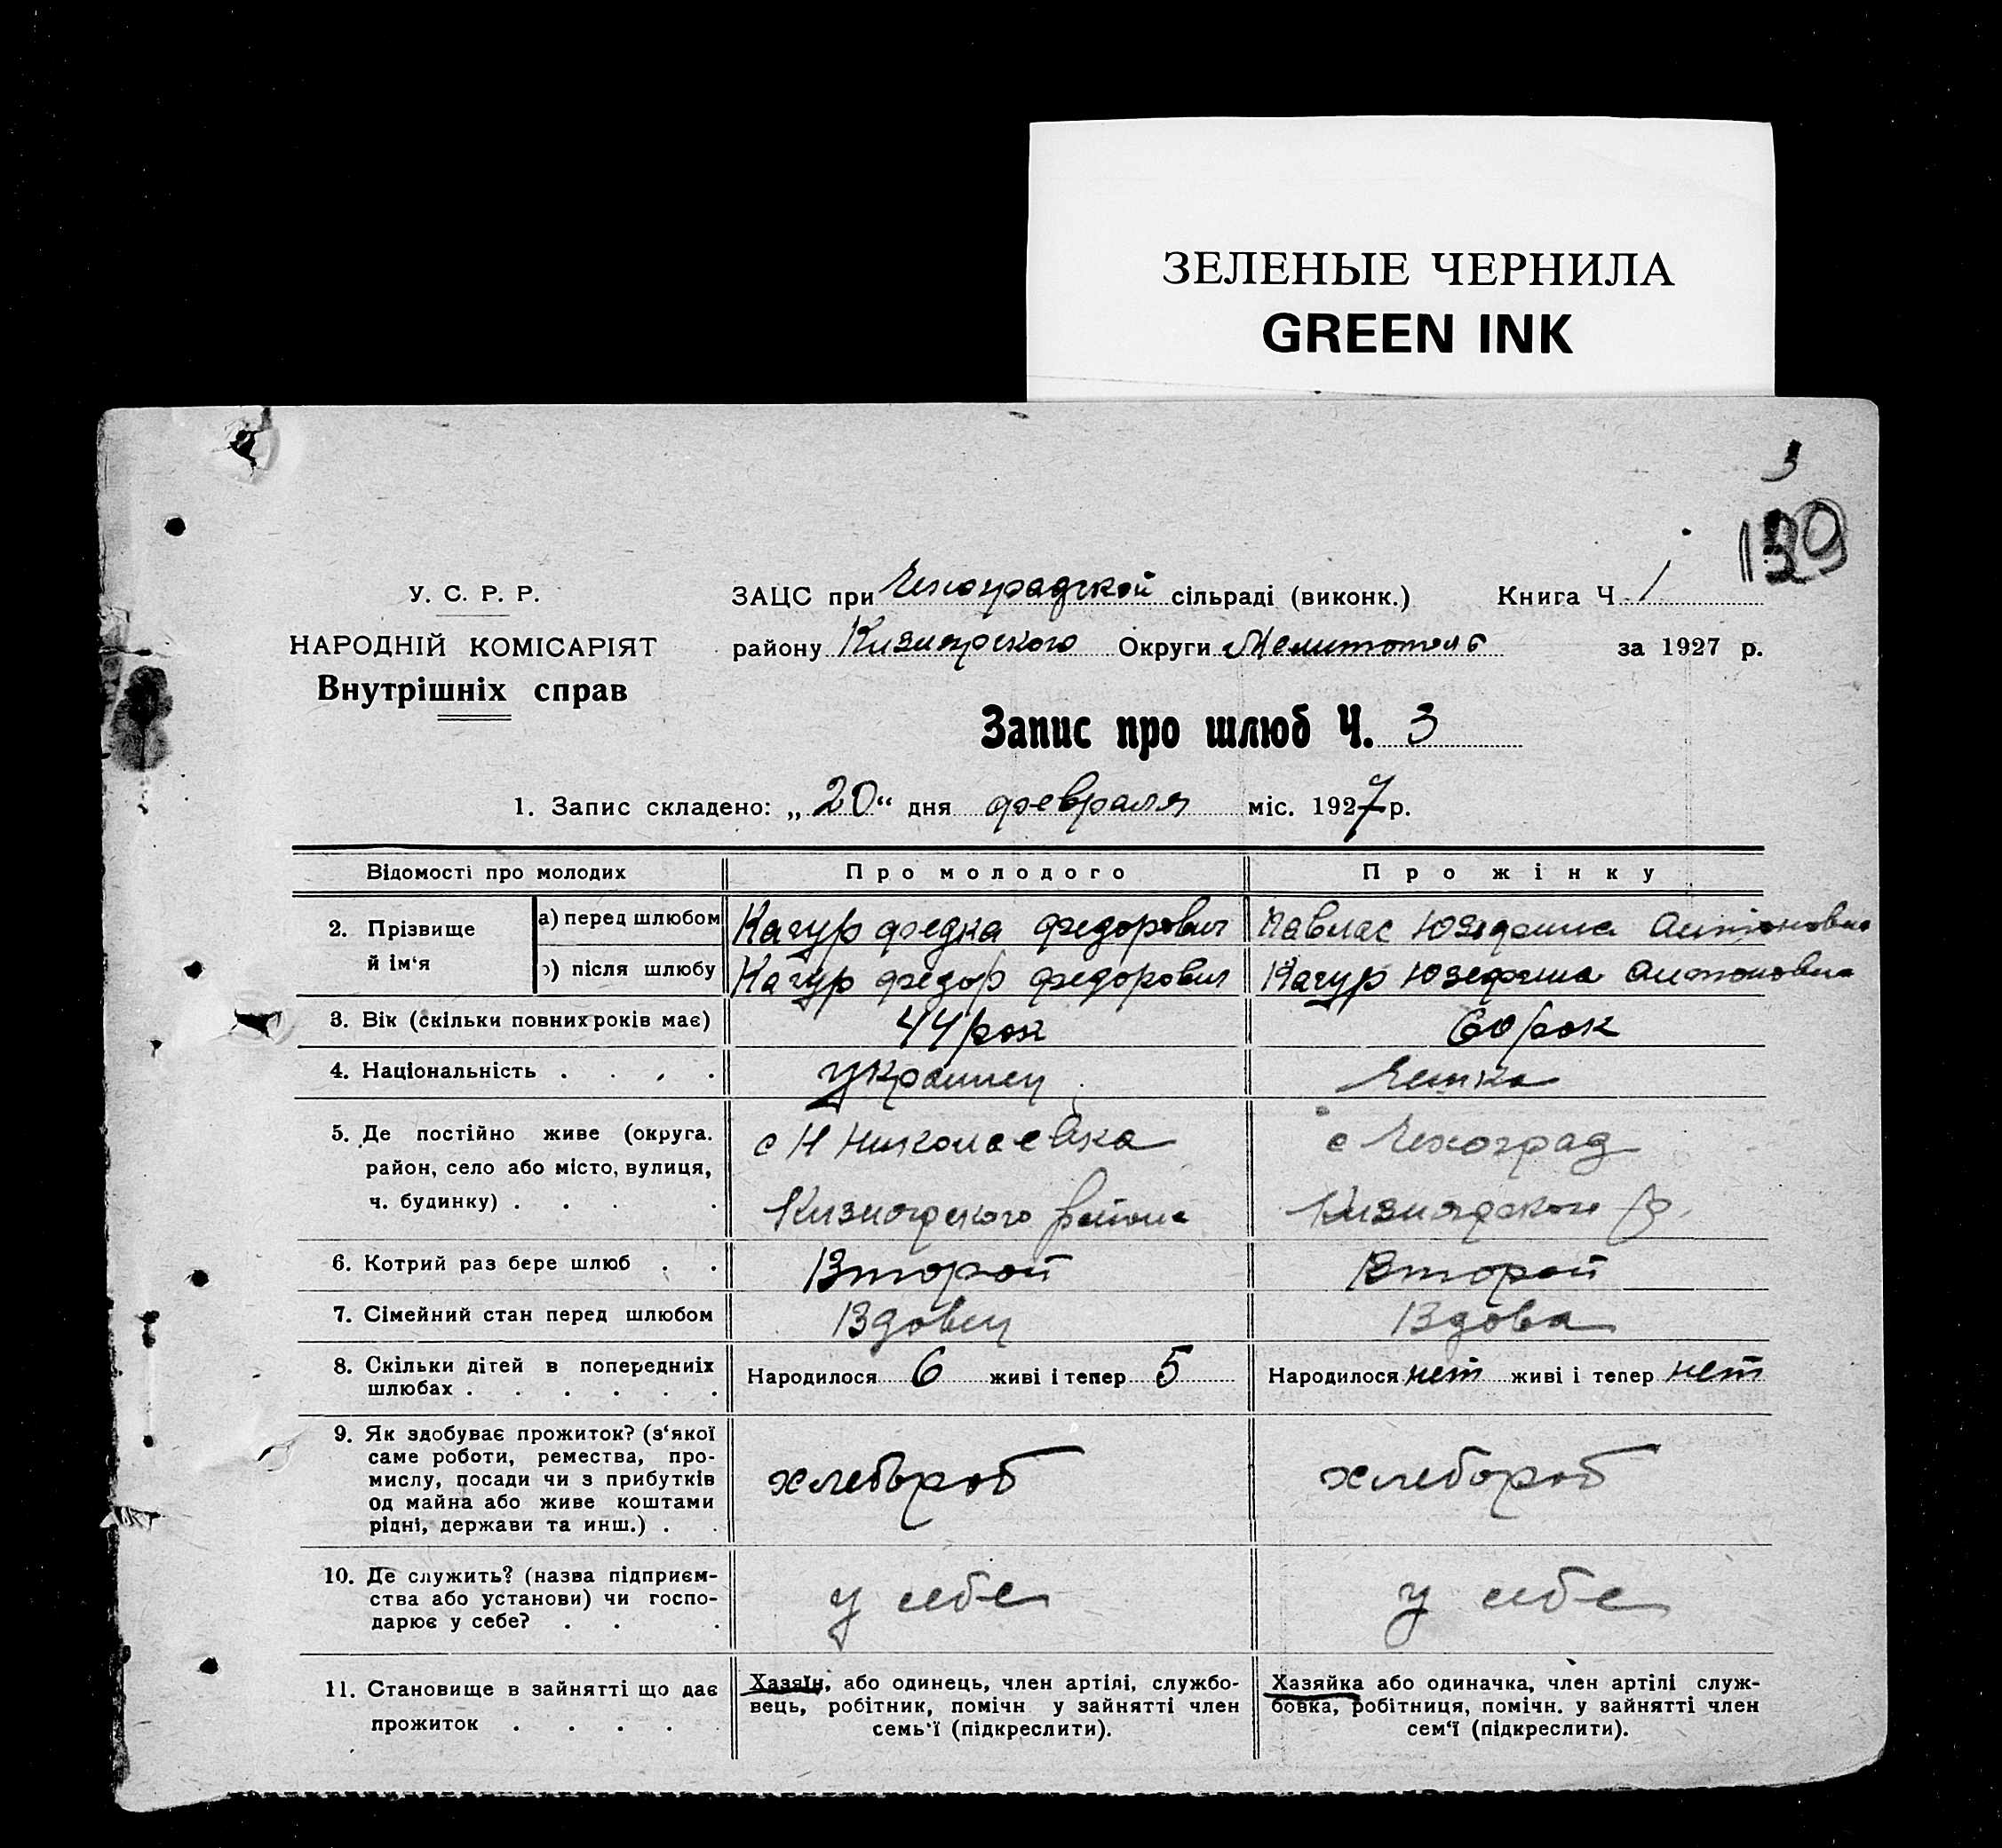 ЗЕЛЕНЫЕ ЧЕРНИЛА
GREEN INK
3
У. С. Р. Р.
НАРОДНІЙ КОМІСАРІЯТ
Внутрішніх справ
ЗАЦС при Чехоградской сільраді (виконк.) Книга Ч. 1
району Кизиярского Округи Мелитополь за 1927 р.
Запис про шлюб Ч. 3
1. Запис складено: „20“ дня февраля міс. 1927 р.
Відомості про молодих
Про молодого
Про жінку
2. Прізвище й ім‘я
а) перед шлюбом
Качур Федка Федорович
Павлас Юзефина Антоновна
б) після шлюбу
Качур Федор Федорович
Качур Юзефина Антоновна
3. Вік (скільки повних років має)
44 рок
60 рок
4. Національність . . . .
Украинец
Чешка
5. Де постійно живе (округа.
район, село або місто, вулиця,
ч. будинку) . . . .
с Н Николаевка
Кизиярского района
с Чехоград
Кизиярского р.
6. Котрий раз бере шлюб . .
Второй
Второй
7. Сімейний стан перед шлюбом
Вдовец
Вдова
8. Скільки дітей в попередниіх
шлюбах . . . . . .
Народилося 6 живі і тепер 5
Народилося нет живі і тепер нет
9. Як здобуває прожиток? (з‘якої
саме роботи, ремества, про-
мислу, посади чи з прибутків
од майна або живе коштами
рідні, держави та инш.) . .
хлебороб
хлебороб
10. Де служить? (назва підприєм-
ства або установи) чи госпо-
дарює у себе? . . .
у себе
у себе
11. Становище в зайнятті що дає
прожиток . . . . .
Хазяїн, або одинець, член артілі, службо-
вець, робітник, помічн у зайнятті член
семь‘ї (підкреслити).
Хазяйка або одиначка, член артілі служ-
бовка, робітниця, помічн. у зайнятті член
сем‘ї (підкреслити).